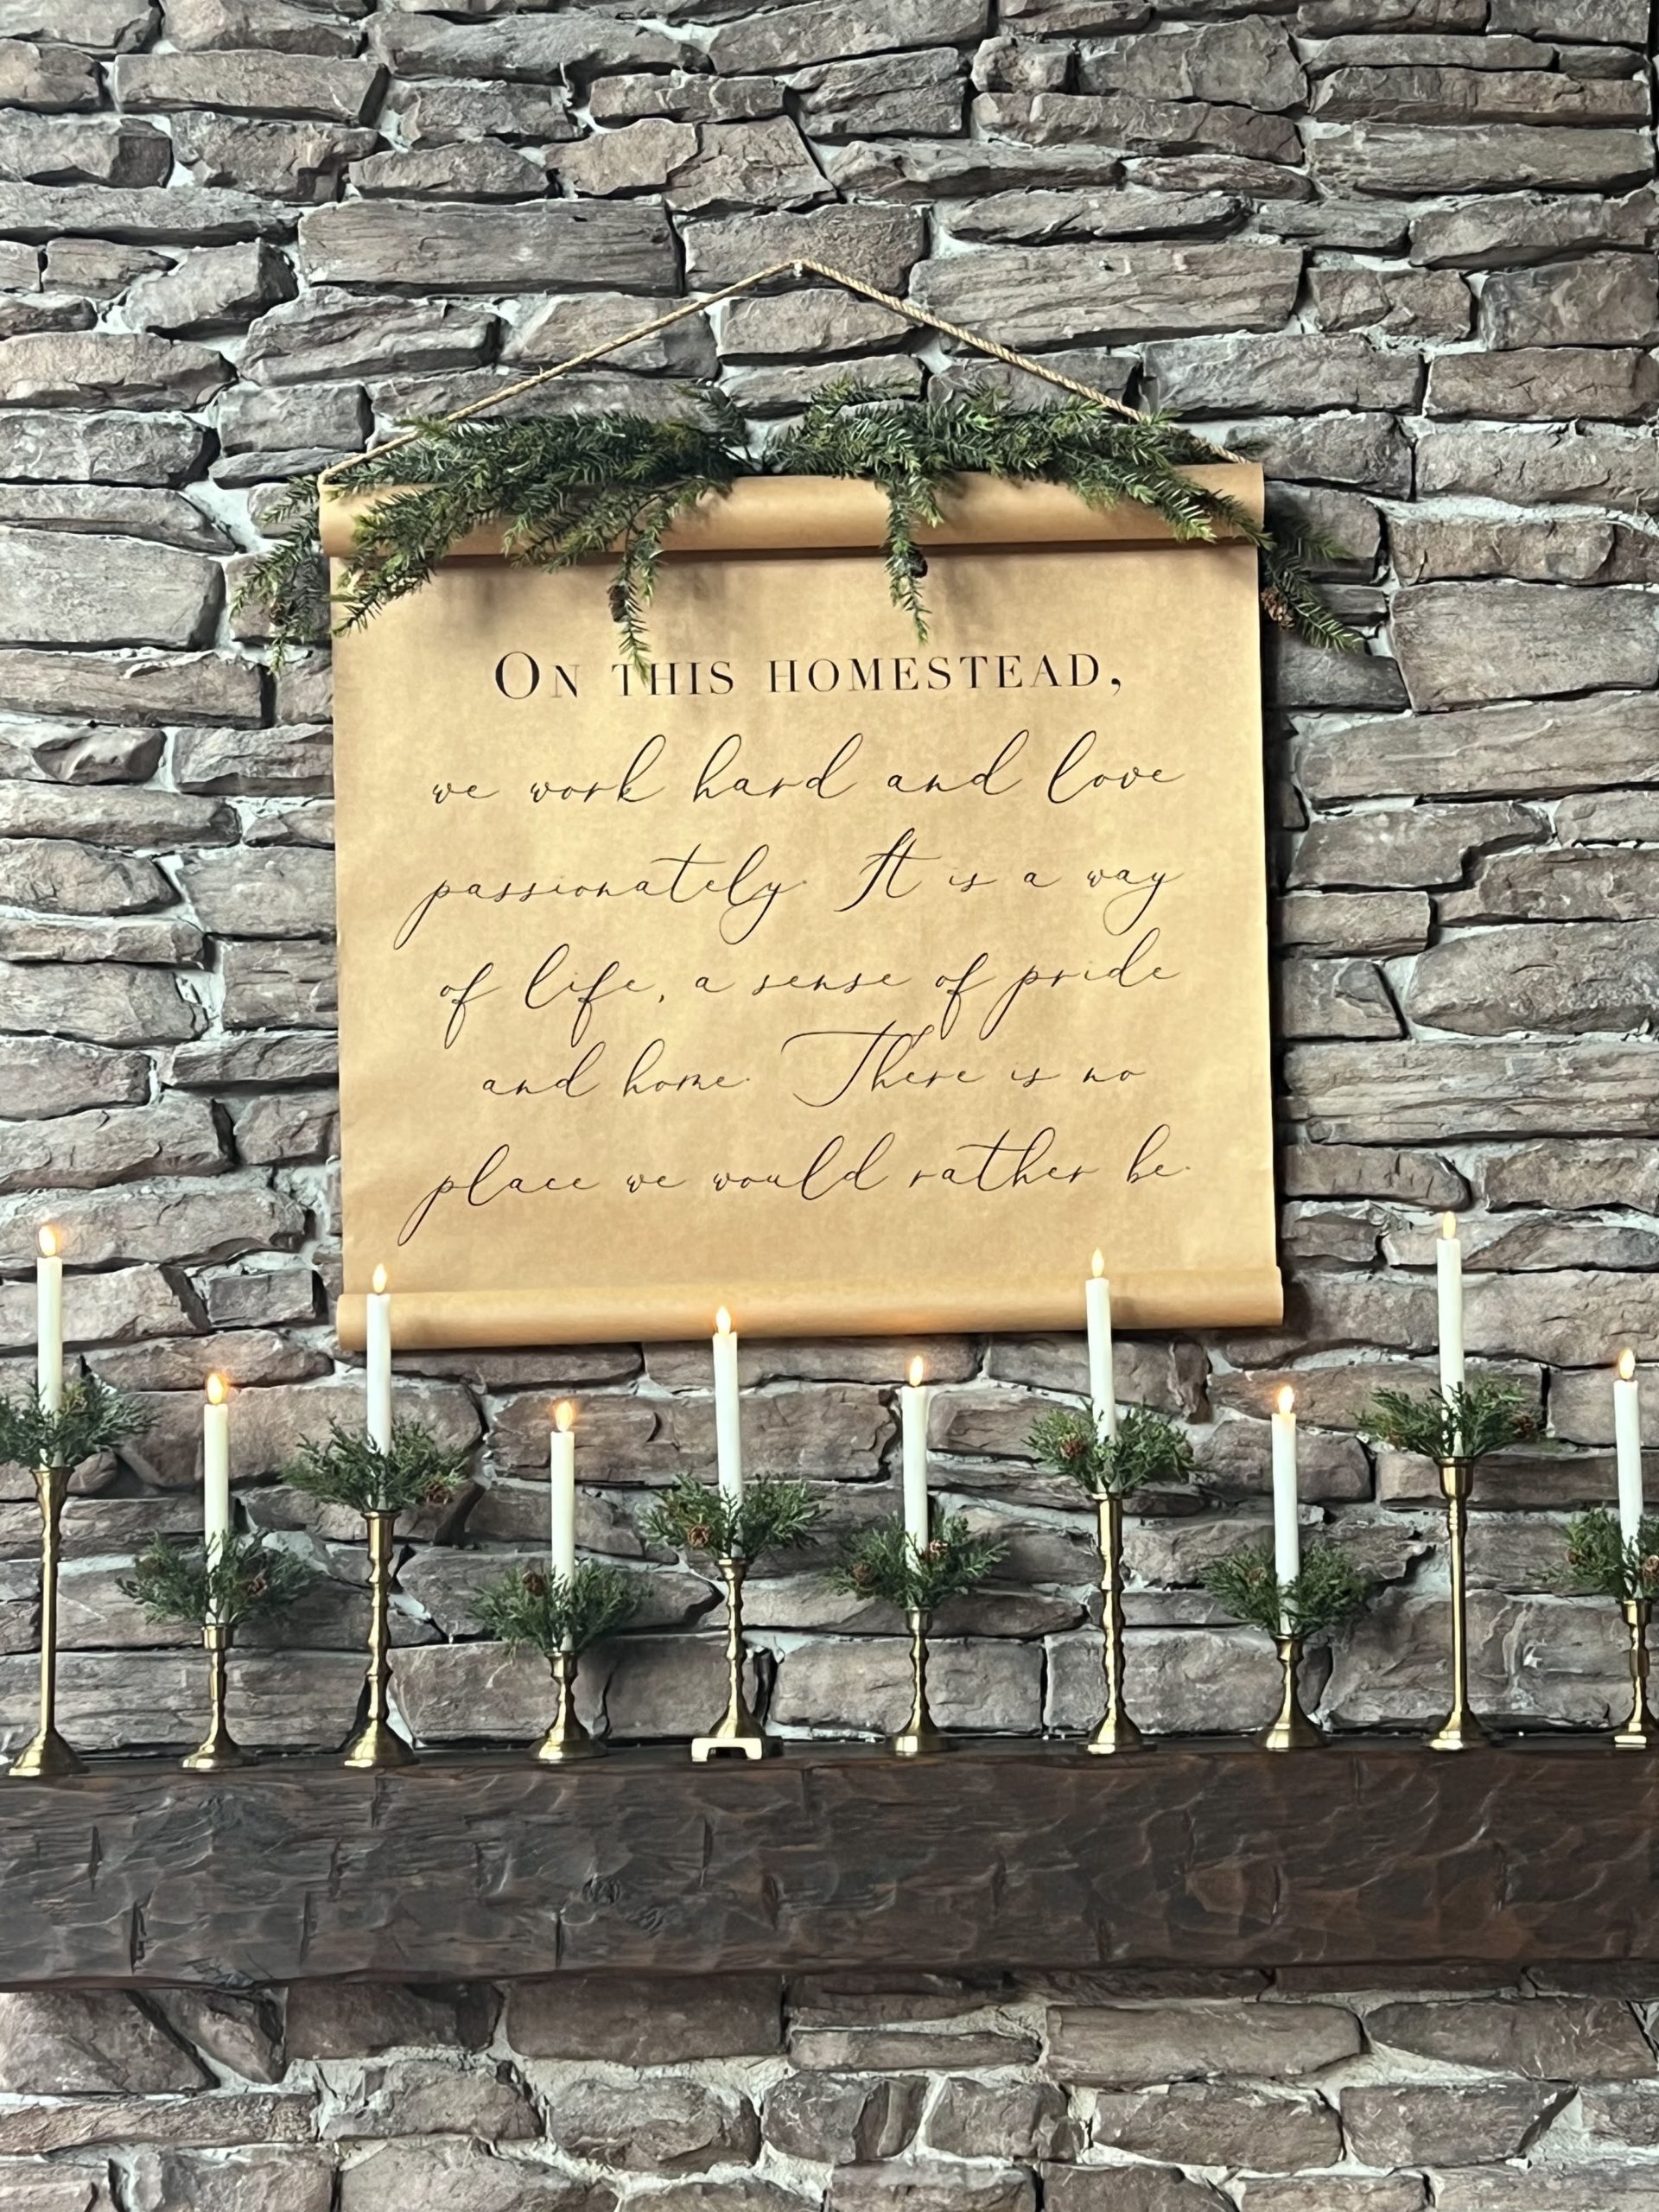 On this homestead,
we work hard and love
passionately. It is a way
of life, a sense of pride
and home. There is no
place we would rather be.